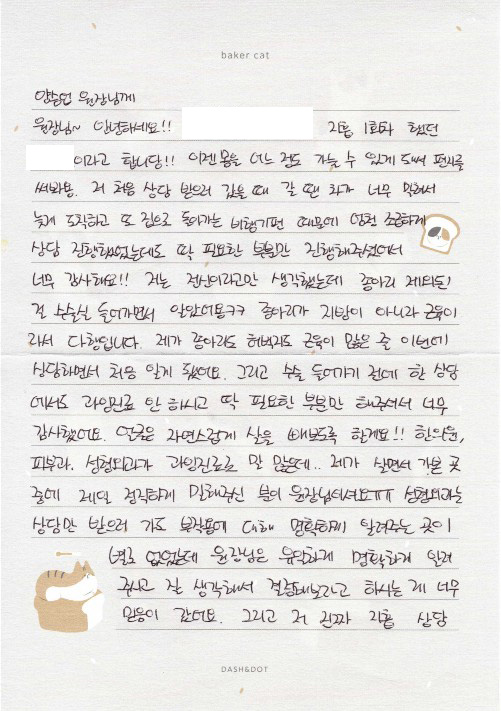 baker cat
원장님께
원장님~ 안녕하세요!! 지흡 1회차 했던
이라고 합니당!! 이젠 몸을 어느 정도 가눌 수 있게 돼서 편지를
써봐용. 저 처음 상담 받으러 갔을 때 갈 땐 차가 너무 막혀서
늦게 도착하고 또 집으로 돌아가는 비행기편 때문에 엄청 조급하게
상담 진행했었는데도 딱 필요한 부분만 진행해주셔서
너무 감사해요!! 저는 전신이라고만 생각했는데 종아리 제외된
걸 수술실 들어가면서 알았어요ㅋㅋ 종아리가 지방이 아니라 근육이
라서 다행입니다. 제가 종아리도 허벅지도 근육이 많은 줄 이번에
상담하면서 처음 알게 됐어요. 그리고 수술 들어가기 전에 한 상담
에서도 과잉진료 안 하시고 딱 필요한 부분만 해주셔서 너무
감사했어요. 얼굴은 자연스럽게 살을 빼보도록 할게요!! 한의원,
피부과, 성형외과가 과잉진료로 말 많은데.. 제가 살면서 가본 곳
중에 제일 정직하게 말해주신 분이 원장님이셔요ㅠㅠ 성형외과는
상담만 받으러 가도 부작용에 대해 명확하게 알려주는 곳이
별로 없었는데 원장님은 유일하게 명확하게 알려
주시고 잘 생각해서 결정해보라고 하시는 게 너무
믿음이 갔어요. 그리고 저 진짜 지흡 상담
DASH&DOT